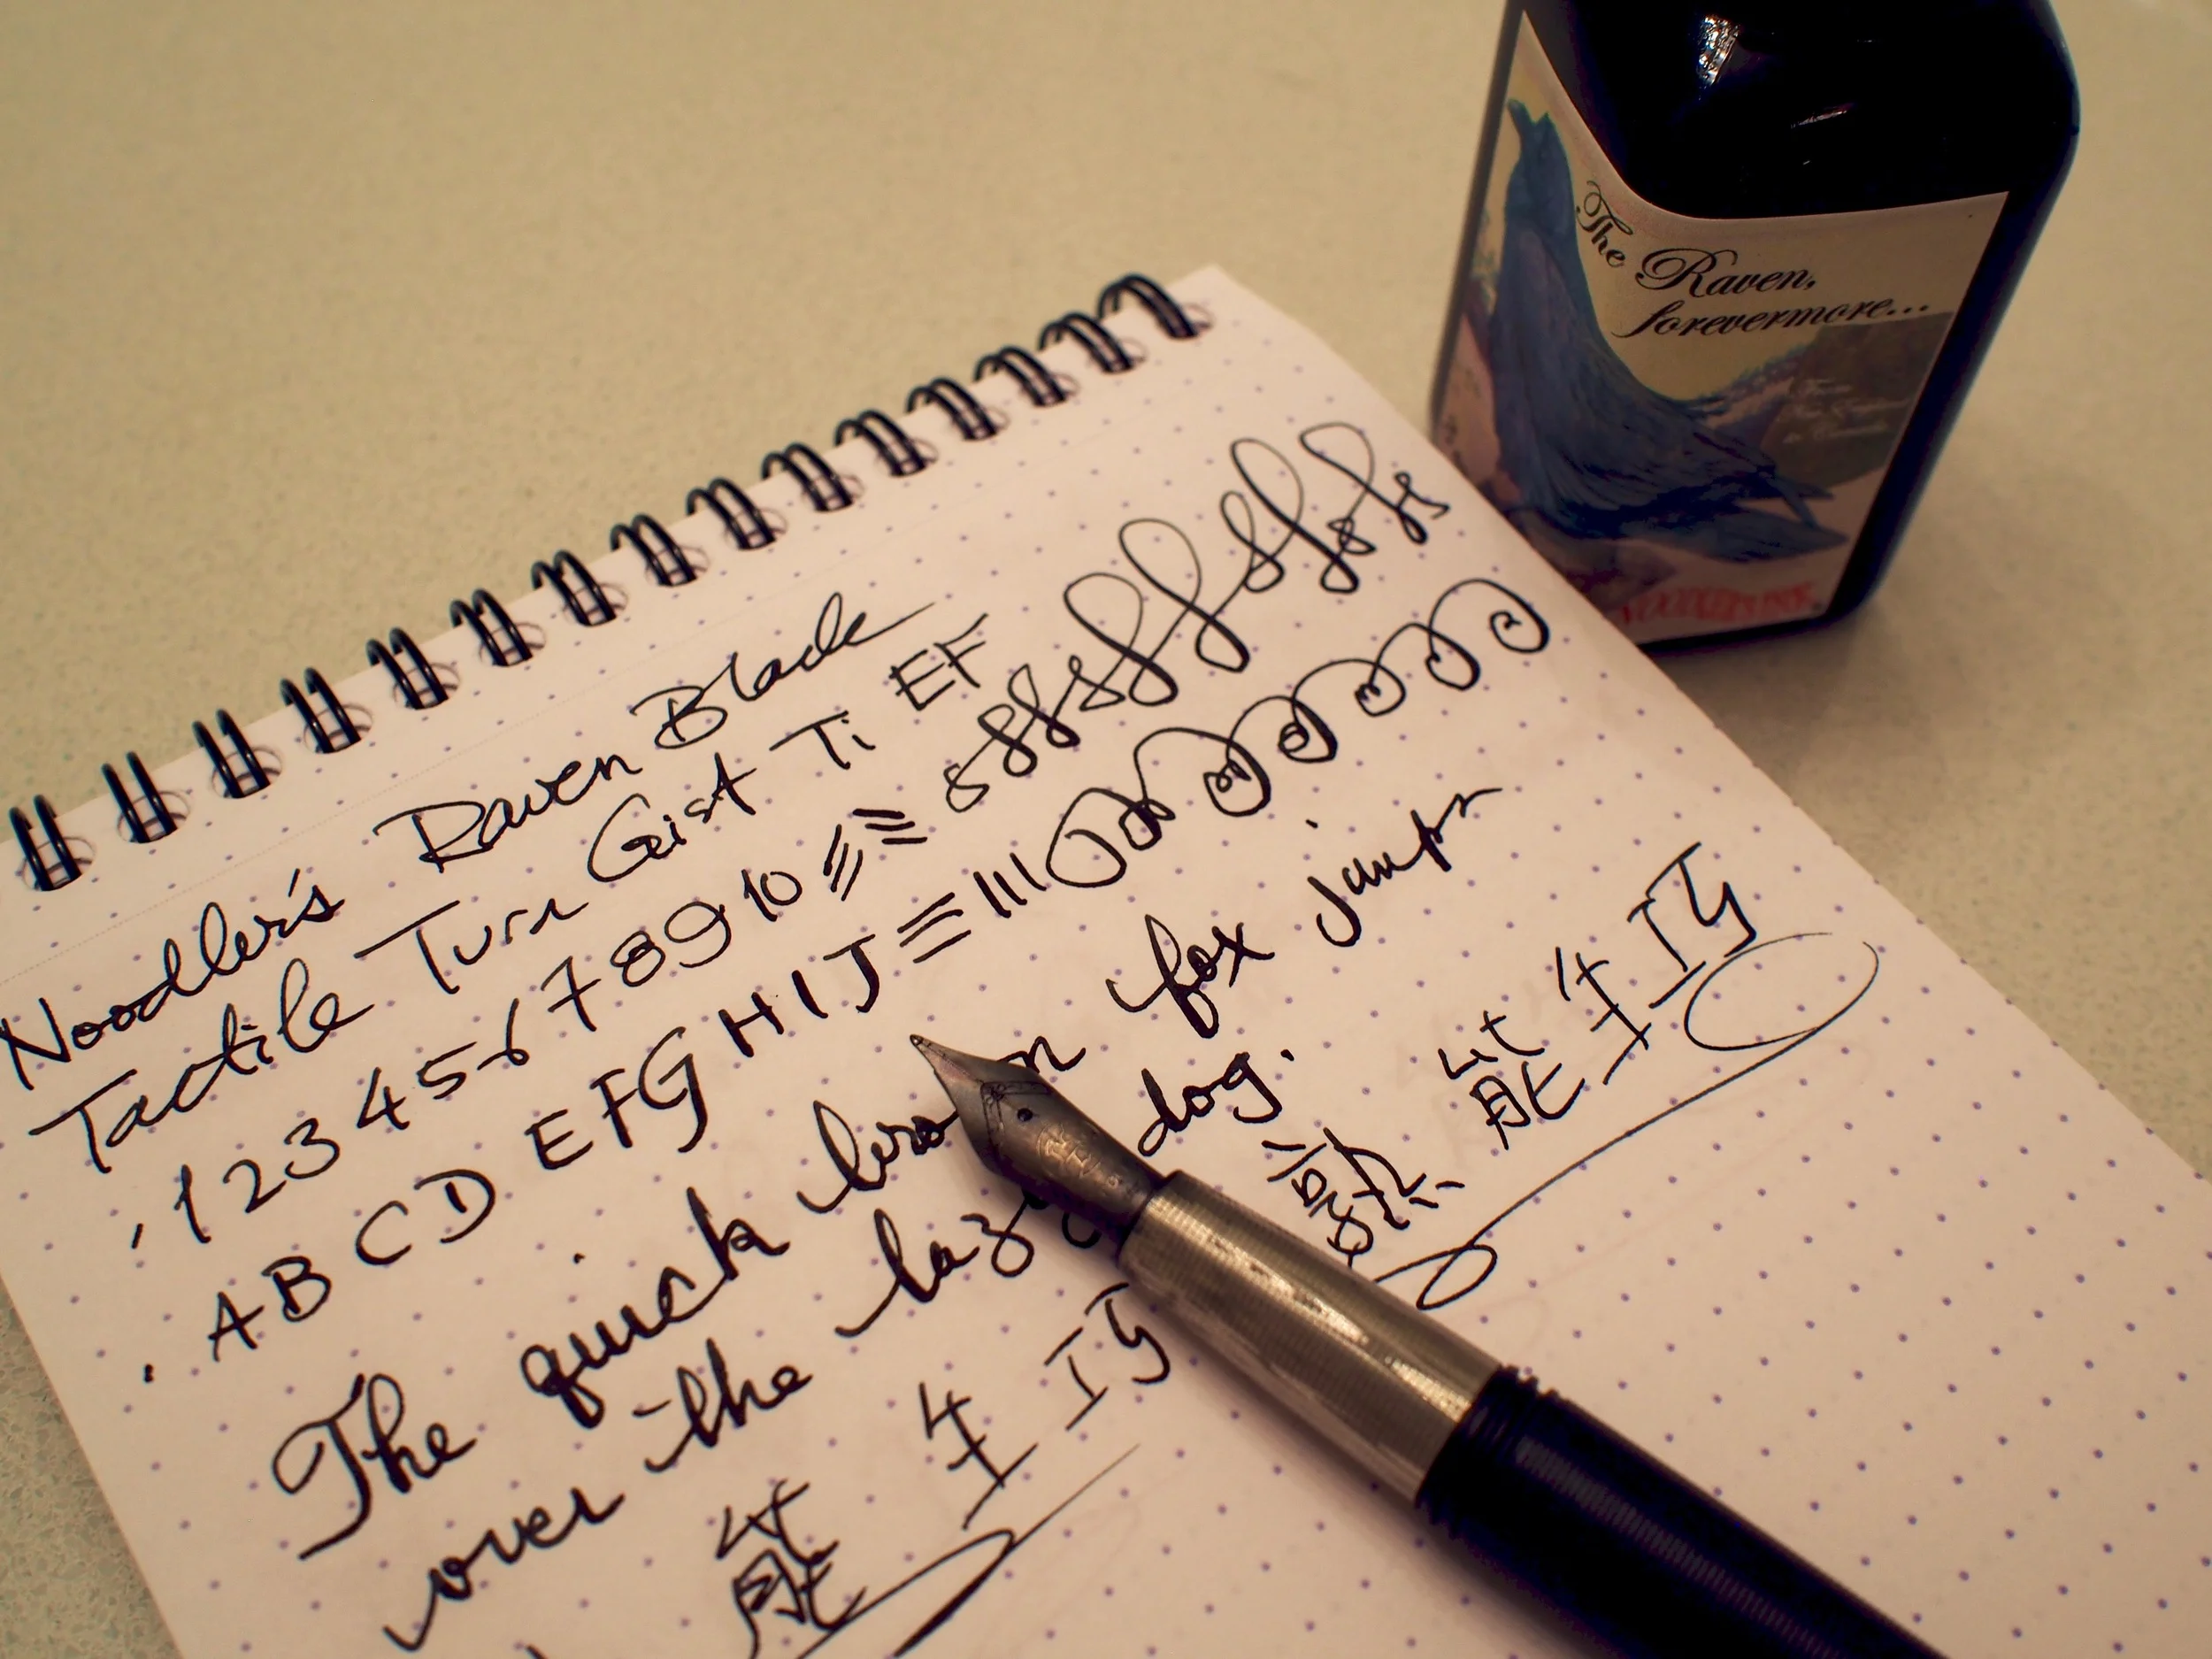 The Raven,
forevermore...
Noodler's Raven Black
Tactile Turn Gist Ti EF
1 2 3 4 5 6 7 8 9 10
A B C D E F G H I J
The quick brown fox jumps
over the lazy dog.
熟能生巧
能生巧